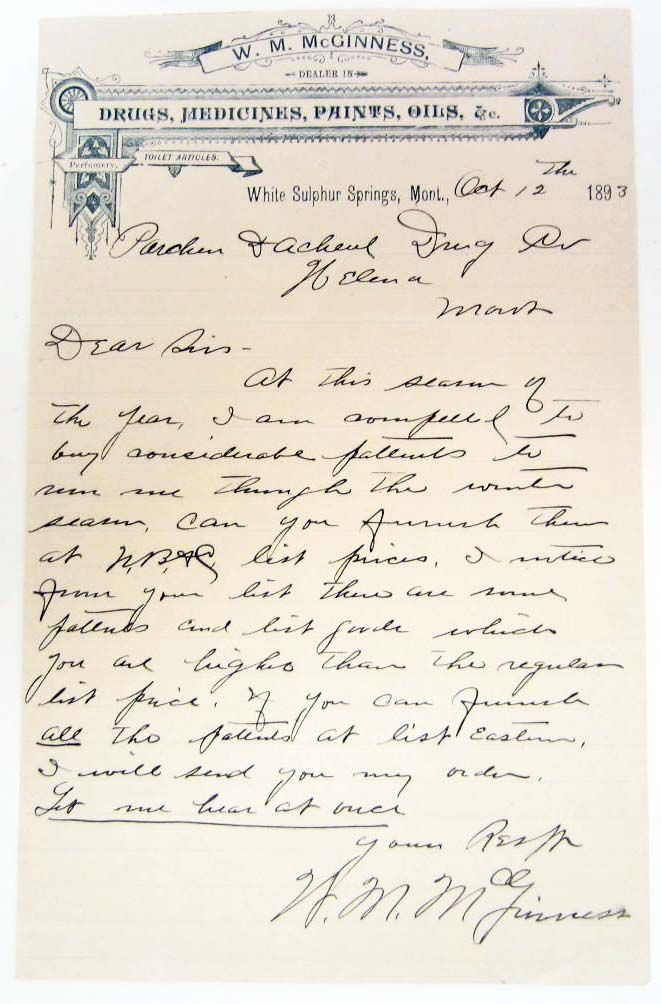 W. M. McGINNESS,
DEALER IN
DRUGS, MEDICINES, PAINTS, OILS, &c.
Perfumery,
TOILET ARTICLES.
White Sulphur Springs, Mont., Oct 12 the 1893
Parchen & Acheul Drug Co
Helena
Mont
Dear Sirs -
At this season of
the year, I am compelled to
buy considerable pattents to
run me through the winter
season, can you furnish them
at list prices. I notice
from your list there are some
pattents and list goods which
you are higher than the regular
list price. If you can furnish
all the pattents at list Eastern,
I will send you my order.
Let me hear at once
Yours Resp
W. M. McGinness